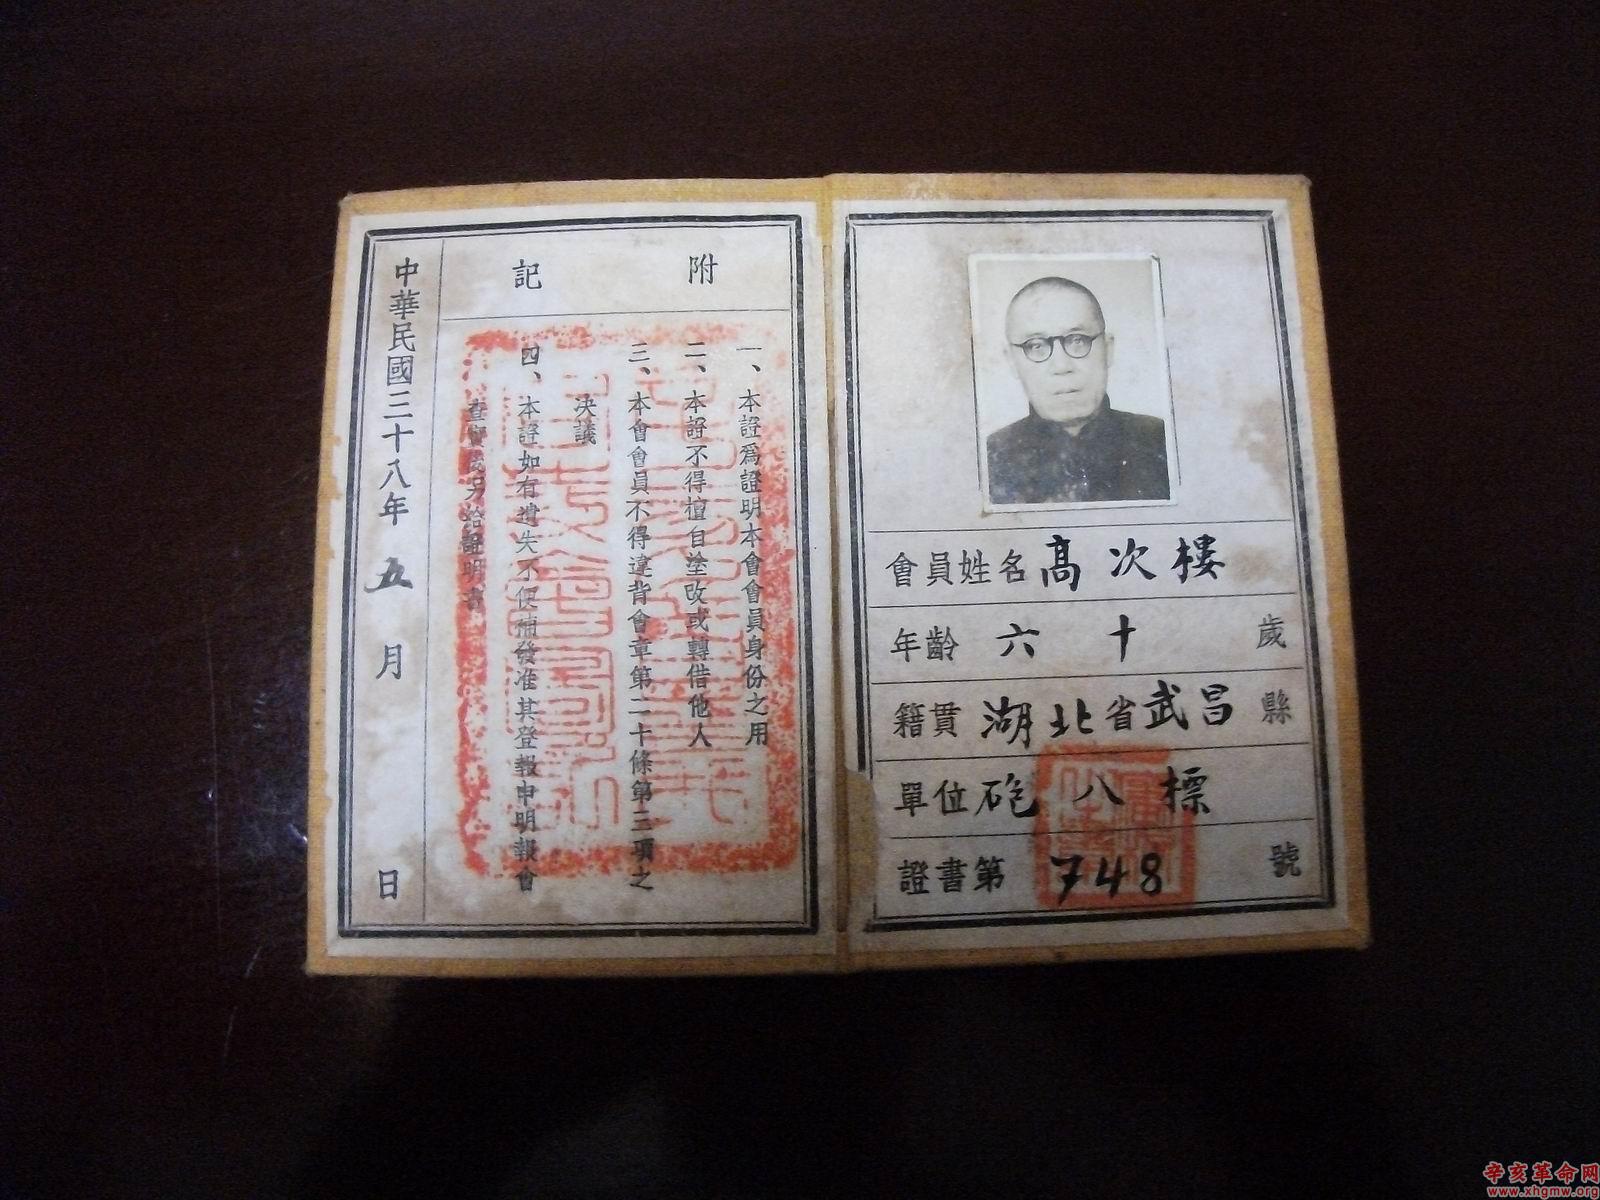 附記
一、本證爲證明本會會員身份之用
二、本證不得擅自塗改或轉借他人
三、本會會員不得違背會章第二十條第三項之
決議
四、本證如有遺失不便補發准其登報申明報會
查實後另給證明書
中華民國三十八年五月日
會員姓名高次樓
年齡六十歲
籍貫湖北省武昌縣
單位砲八標
證書第748號
辛亥革命网
www.xhgmw.org